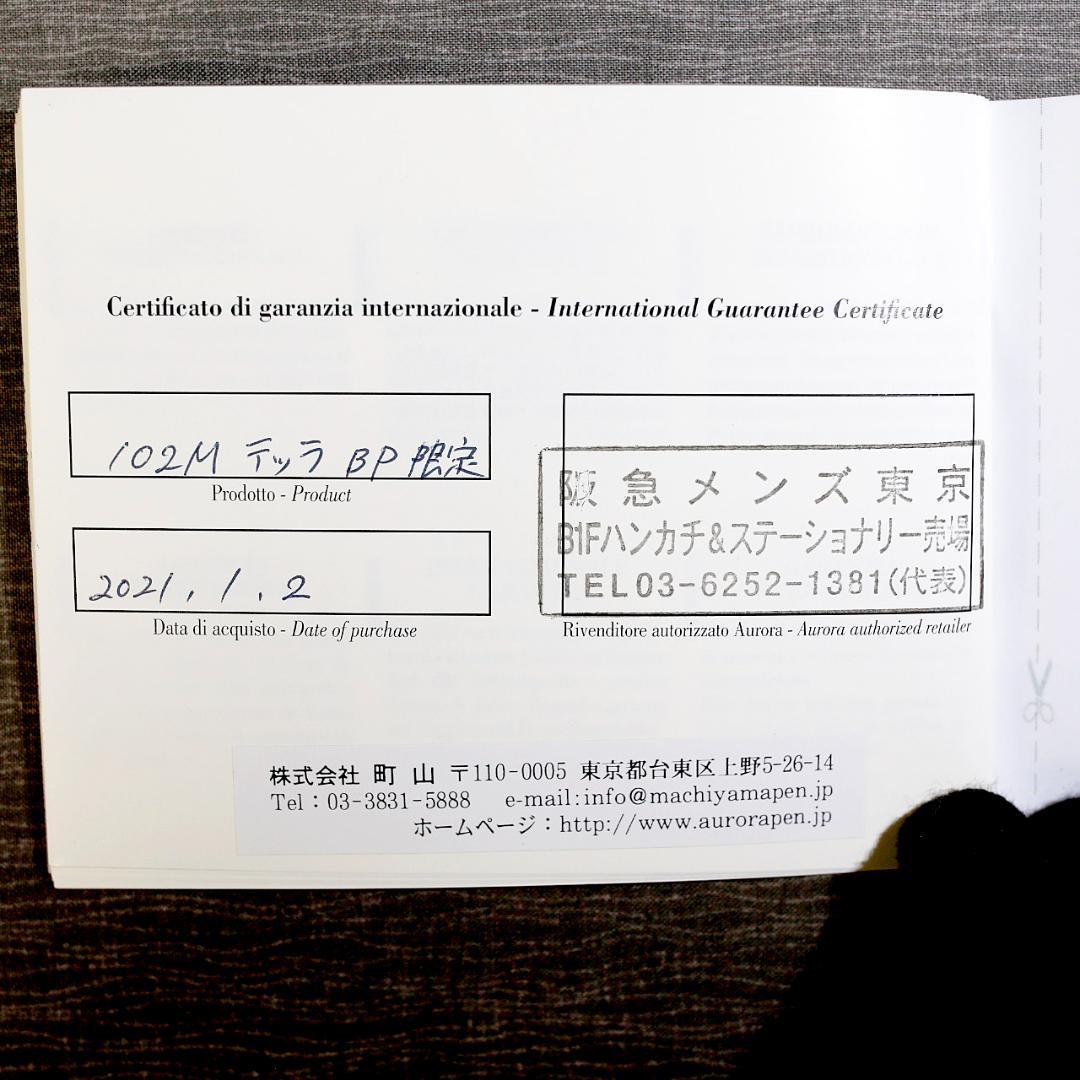 Certificato di garanzia internazionale - International Guarantee Certificate
102M テッラ BP 限定
Prodotto - Product
2021.1.2
Data di acquisto - Date of purchase
阪急メンズ東京
B1Fハンカチ&ステーショナリー売場
TEL03-6252-1381(代表)
Rivenditore autorizzato Aurora - Aurora authorized retailer
株式会社 町山 〒110-0005 東京都台東区上野5-26-14
Tel：03-3831-5888 e-mail:info@machiyamapen.jp
ホームページ：http://www.aurorapen.jp